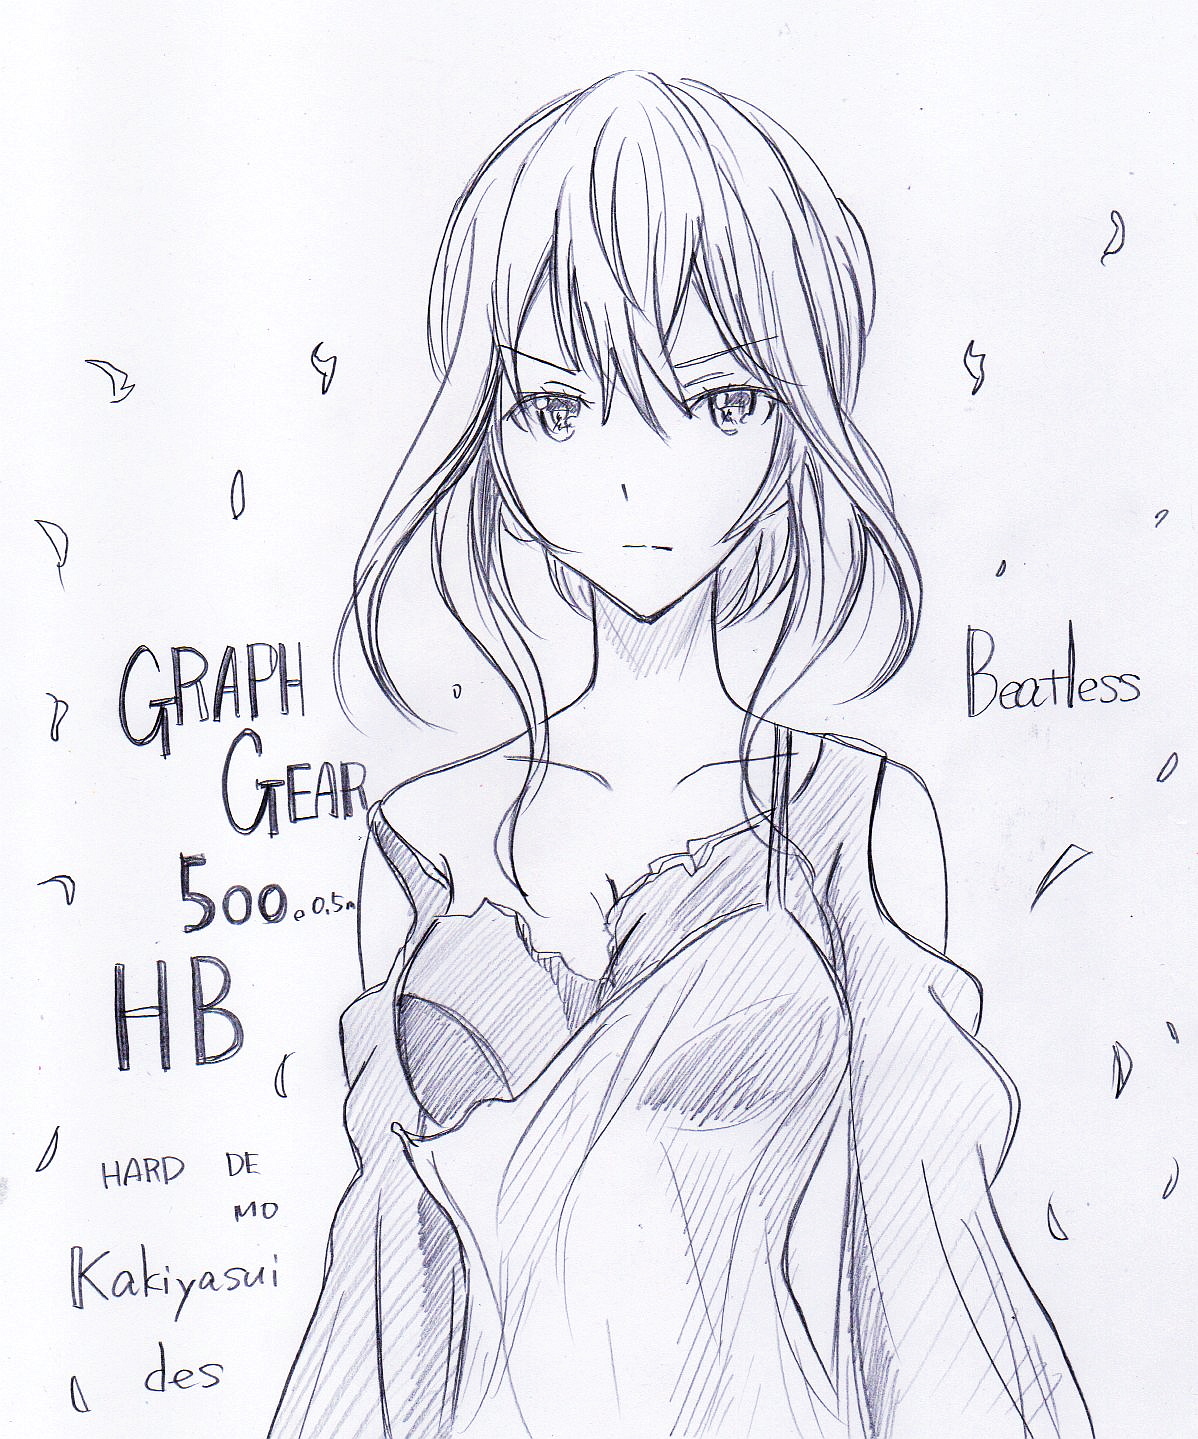 GRAPH
GEAR
500 0.5m
HB
HARD DE
MO
Kakiyasui
des
Beatless